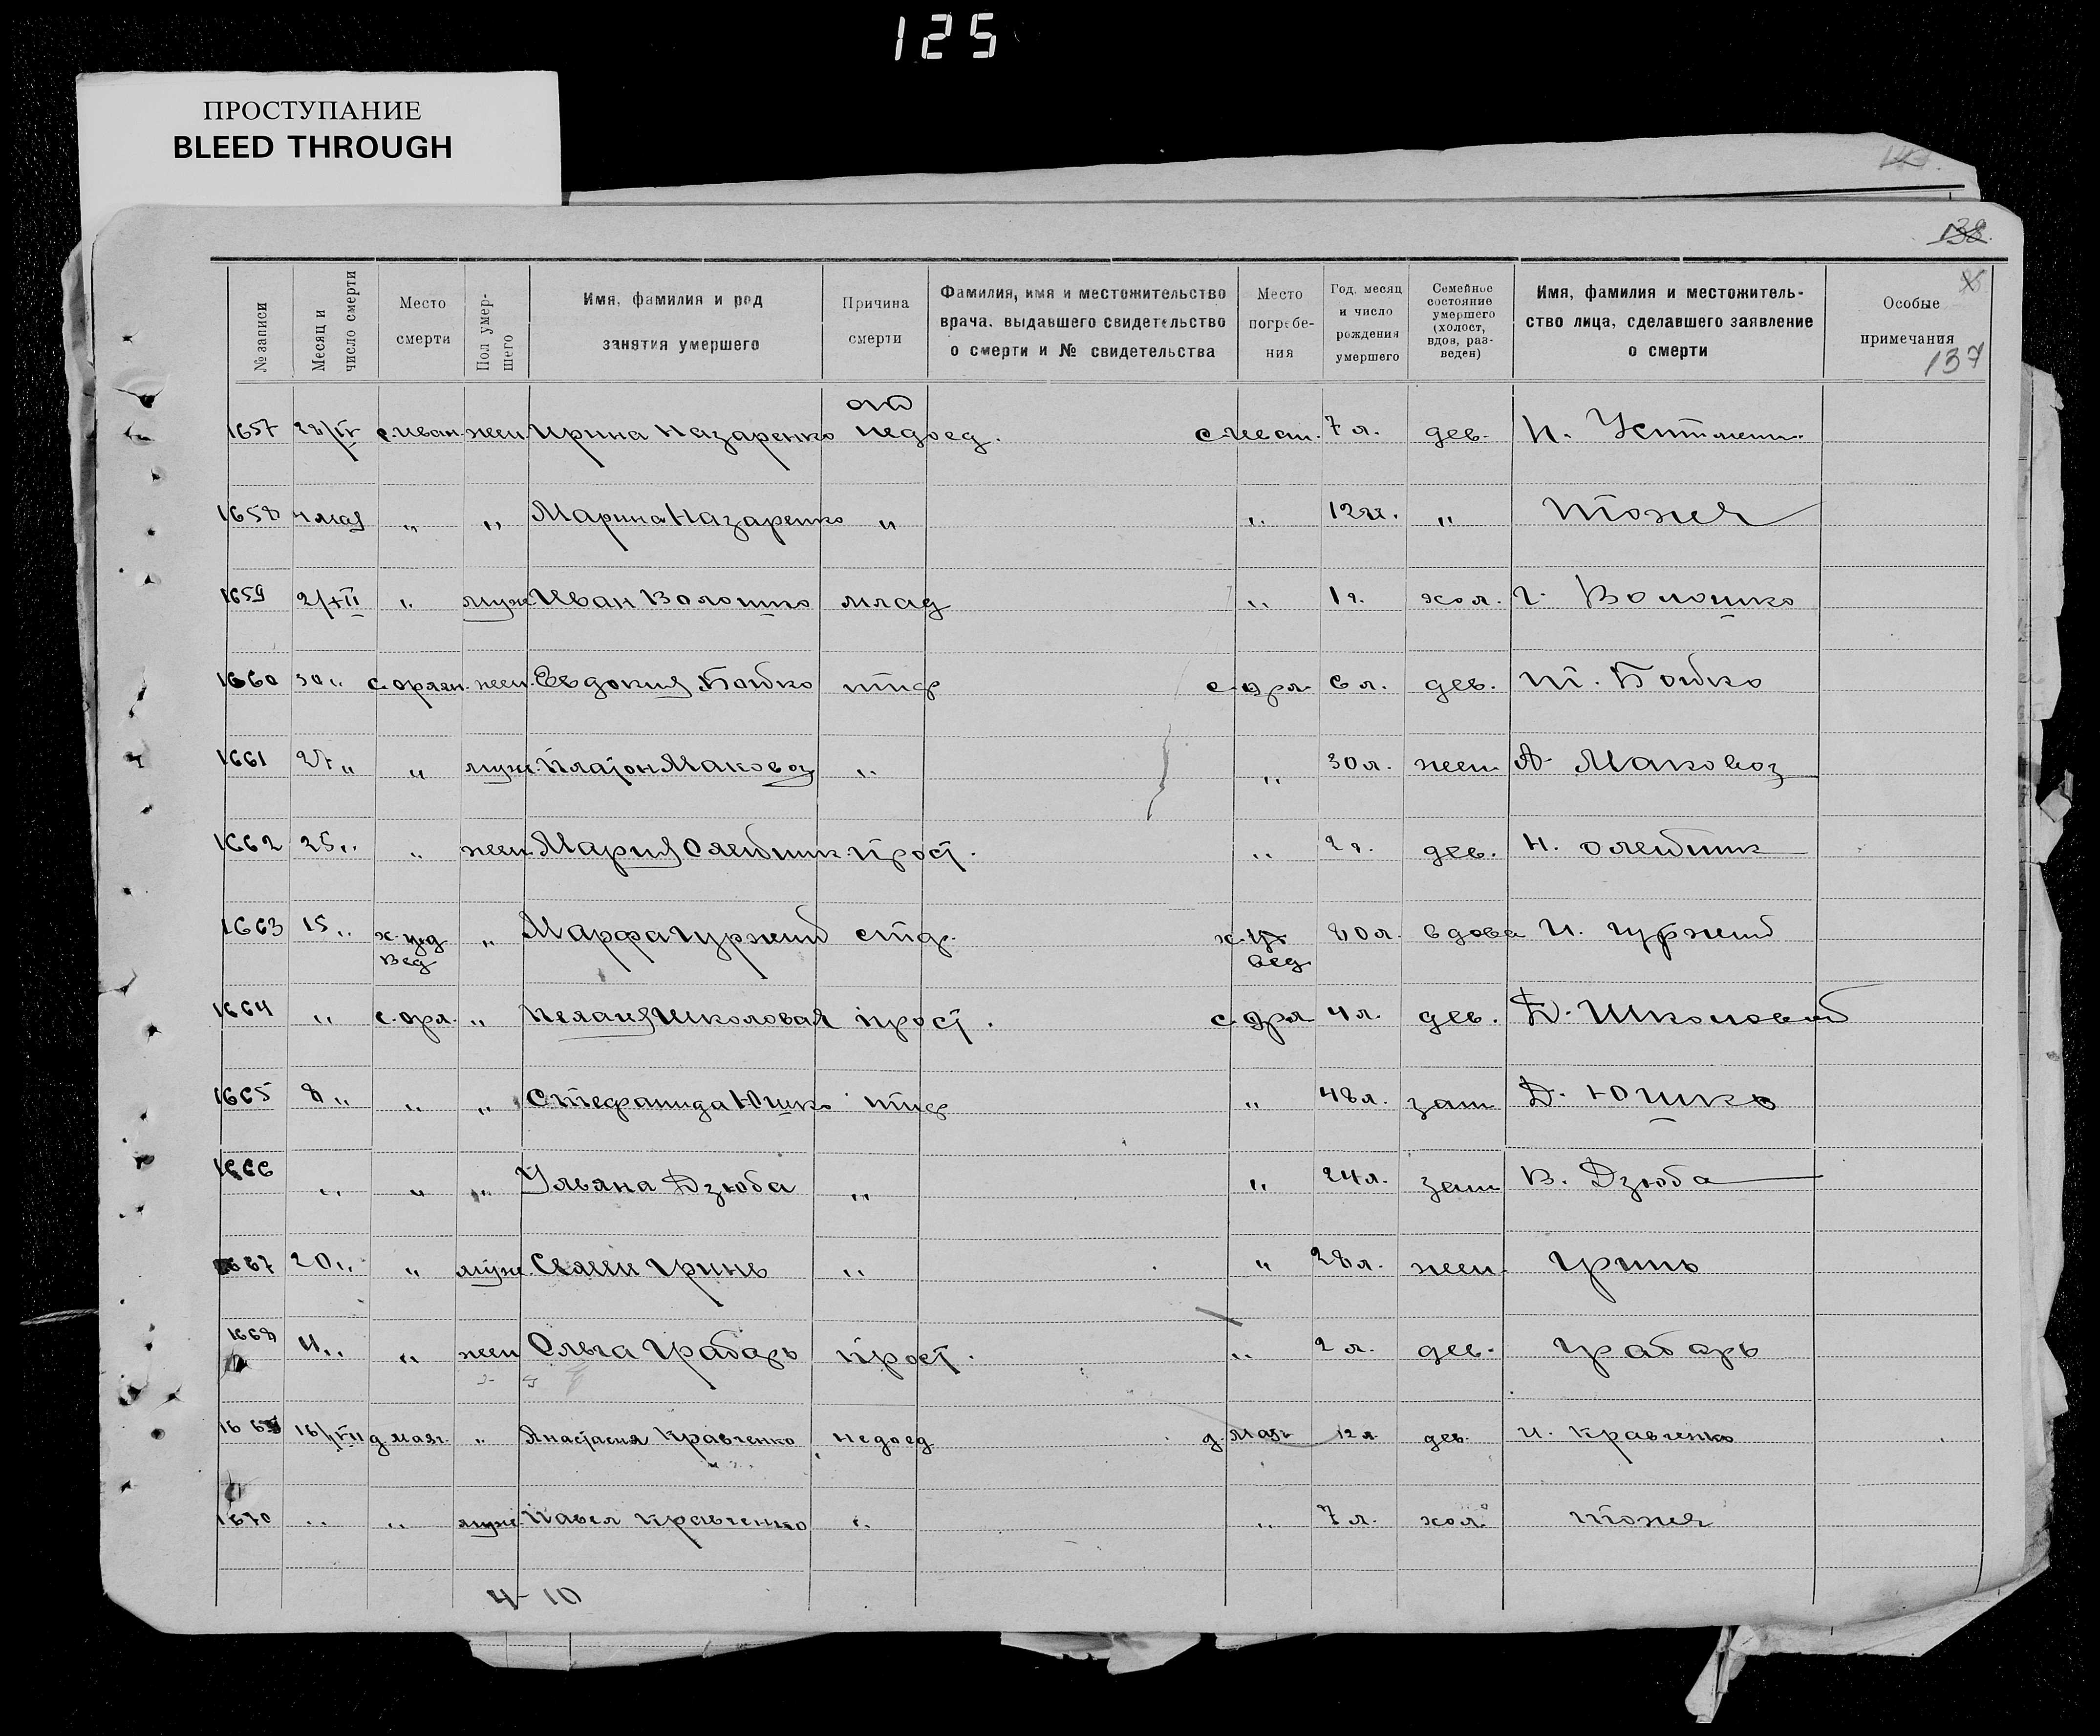 125
ПРОСТУПАНИЕ
BLEED THROUGH
138
№ записи | Месяц и число смерти | Место смерти | Пол умер-шего | Имя, фамилия и род занятия умершего | Причина смерти | Фамилия, имя и местожительство врача, выдавшего свидетельство о смерти и № свидетельства | Место погребе-ния | Год, месяц и число рождения умершего | Семейное состояние умершего (холост, вдов, раз-веден) | Имя, фамилия и местожитель-ство лица, сделавшего заявление о смерти | Особые примечания
137
1657 с. Иван. жен. Ирина Назаренко недоед. 7 л. дев.
1658 4 мая " " Марина Назаренко " " " тоже
1659 2/XII " муж. Иван Волошко млад " 1 г. хол. Г. Волошко
1660 30 " с. орлян. жен. Евдокия Бойко тиф с. орл. 6 л. дев. Т. Бойко
1661 27 " " муж. Платон Маковоз " " 30 л. жен А. Маковоз
1662 25 " " жен. Мария Олейник прост. " 2 г. дев. Н. Олейник
1663 15 " " Марфа Гуржий 80 л. вдова И. Гуржий
1664 " с. орл. " Пелагия Школовая прост. с. орл 4 л. дев. Д. Школовий
1665 8 " " " Стефанида Юшко тиф " 48 л. зам Д. Юшко
1666 " " " Ульяна Дзюба " " 24 л. зам В. Дзюба
1667 20 " " муж. Семен Гринь " " 28 л. жен Гринь
1668 " " жен Ольга Грабарь прост. " 2 л. дев. Грабарь
1669 д. маяч. " Анастасия Кравченко недоед д. маяч 12 л. дев. И. Кравченко
1670 " " муж. Павел Кравченко " " 7 л. хол. тоже
4-10